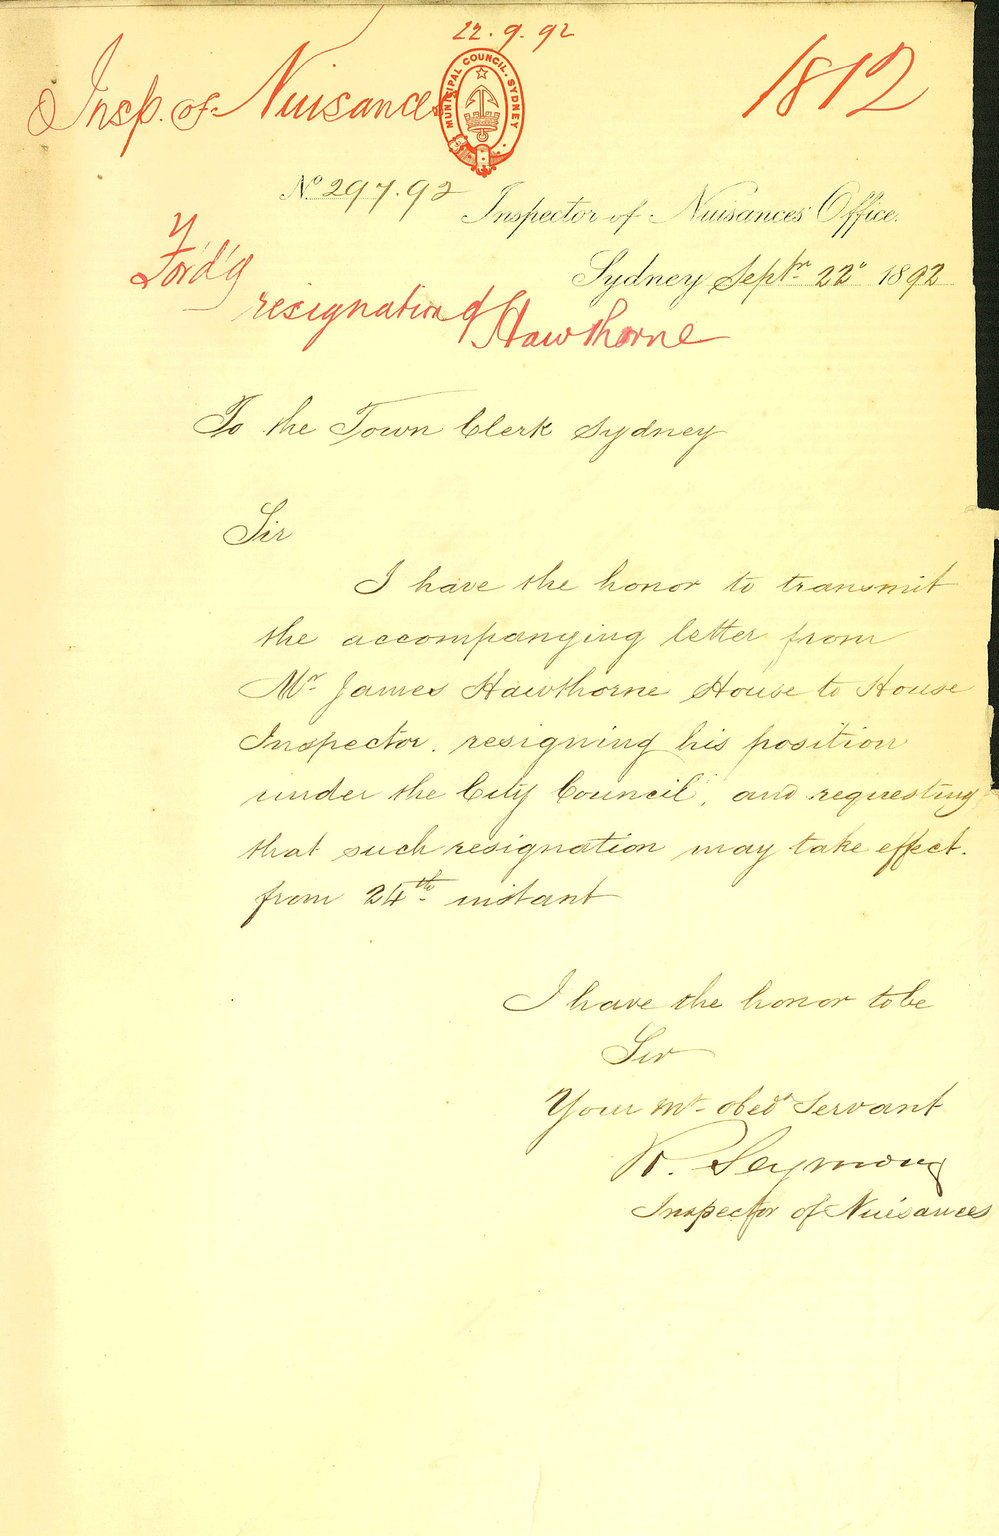 22.9.92
Insp. of Nuisances
1812
MUNICIPAL COUNCIL. SYDNEY
No 297.92
Inspector of Nuisances' Office.
Ford'g
Sydney Septr 22d 1892
resignation of Hawthorne
To the Town Clerk Sydney
Sir
I have the honor to transmit
the accompanying letter from
Mr James Hawthorne House to House
Inspector. resigning his position
under the City Council, and requesting
that such resignation may take effect.
from 24th instant
I have the honor to be
Sir
Your mt obedt Servant
R. Seymour
Inspector of Nuisances